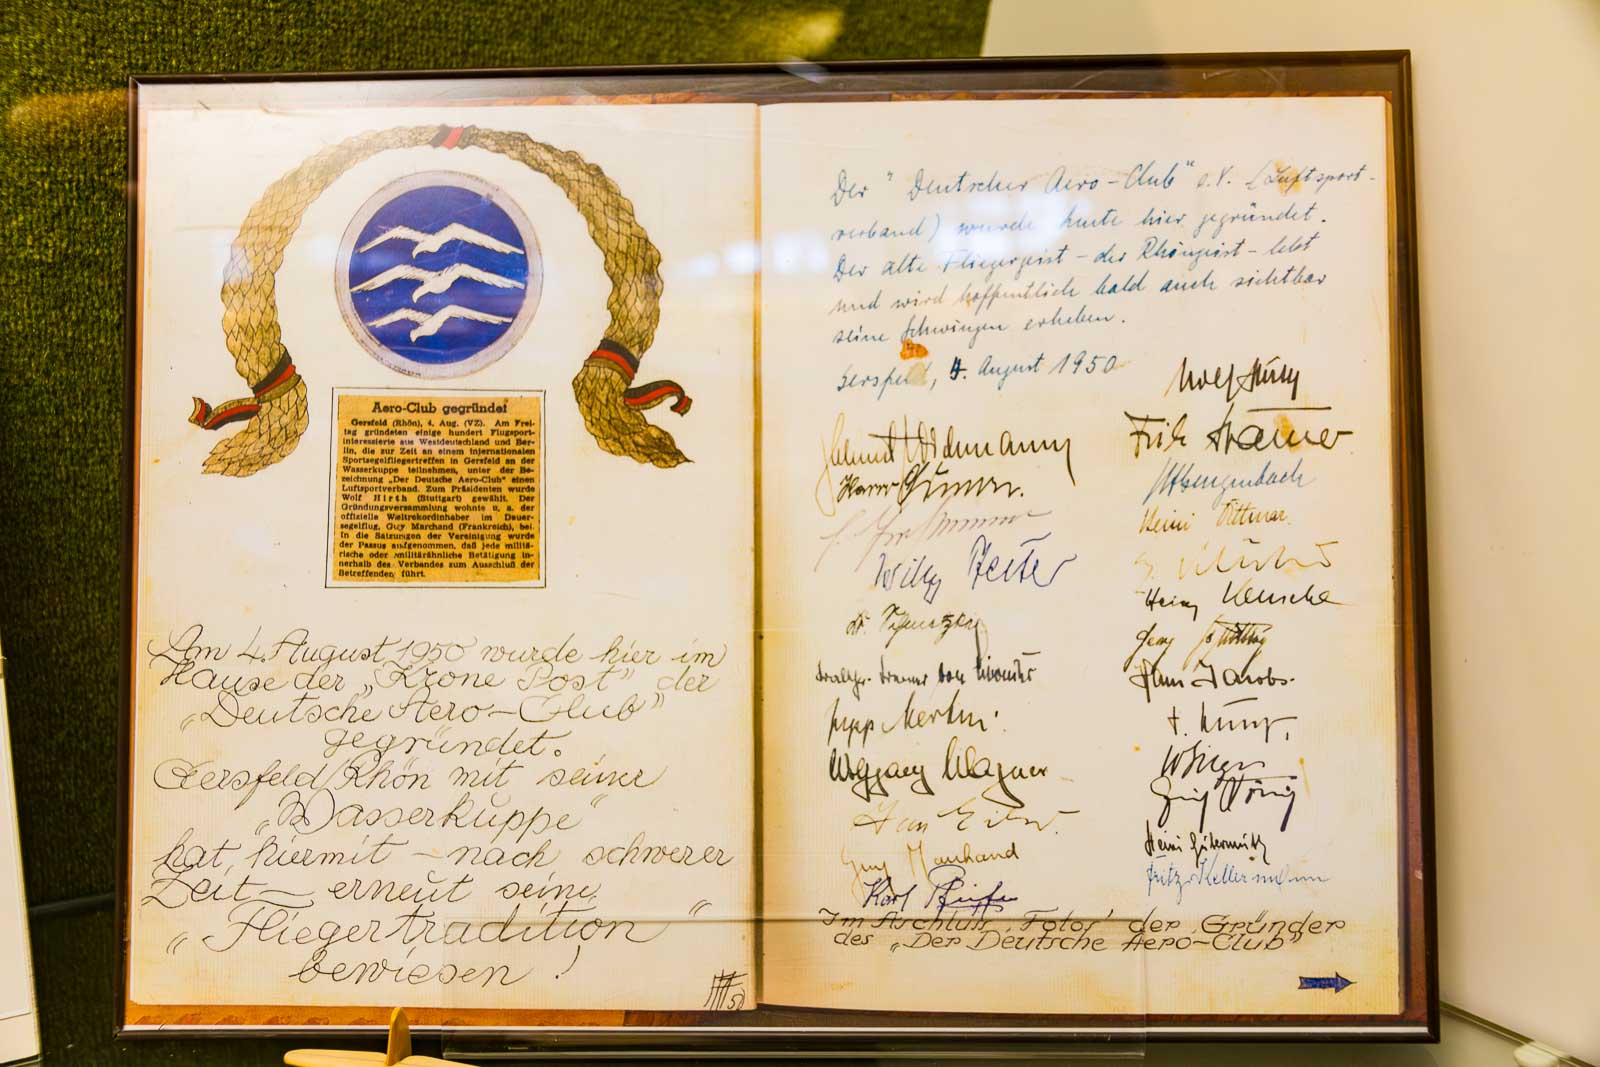 Aero-Club gegründet
Gersfeld (Rhön), 4. Aug. (VZ). Am Frei-
tag gründeten einige hundert Flugsport-
interessierte aus Westdeutschland und Ber-
lin, die zur Zeit an einem internationalen
Sportsegelfliegertreffen in Gersfeld an der
Wasserkuppe teilnehmen, unter der Be-
zeichnung „Der Deutsche Aero-Club" einen
Luftsportverband. Zum Präsidenten wurde
Wolf Hirth (Stuttgart) gewählt. Der
Gründungsversammlung wohnte u. a. der
offizielle Weltrekordinhaber im Dauer-
segelflug, Guy Marchand (Frankreich), bei.
In die Satzungen der Vereinigung wurde
der Passus aufgenommen, daß jede militä-
rische oder militärähnliche Betätigung in-
nerhalb des Verbandes zum Ausschluß der
Betreffenden führt.
Am 4. August 1950 wurde hier im
Hause der „Krone Post" der
„Deutsche Aero-Club"
gegründet.
Gersfeld/Rhön mit seiner
„Wasserkuppe"
hat, hiermit - nach schwerer
Zeit - erneut seine
„Fliegertradition"
bewiesen!
Der "Deutscher Aero-Club" e.V. (Luftsport-
verband) wurde heute hier gegründet.
Der alte Fliegergeist - der Rhöngeist - lebt
und wird hoffentlich bald auch sichtbar
seine Schwingen erheben.
Gersfeld, 4. August 1950
Wolf Hirth
Fritz
Heini Dittmar
Willy
Hans Jacobs.
Wolfgang Wagner
Guy Marchand
Karl
Fritz Kellermann
Im Aschluß „Fotos' der Gründer
des „Der Deutsche Aero-Club"